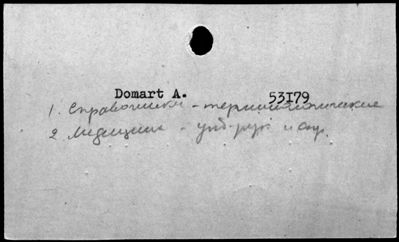 Domart A. 53I79
1. Справочники - терминологические
2. Медицина -